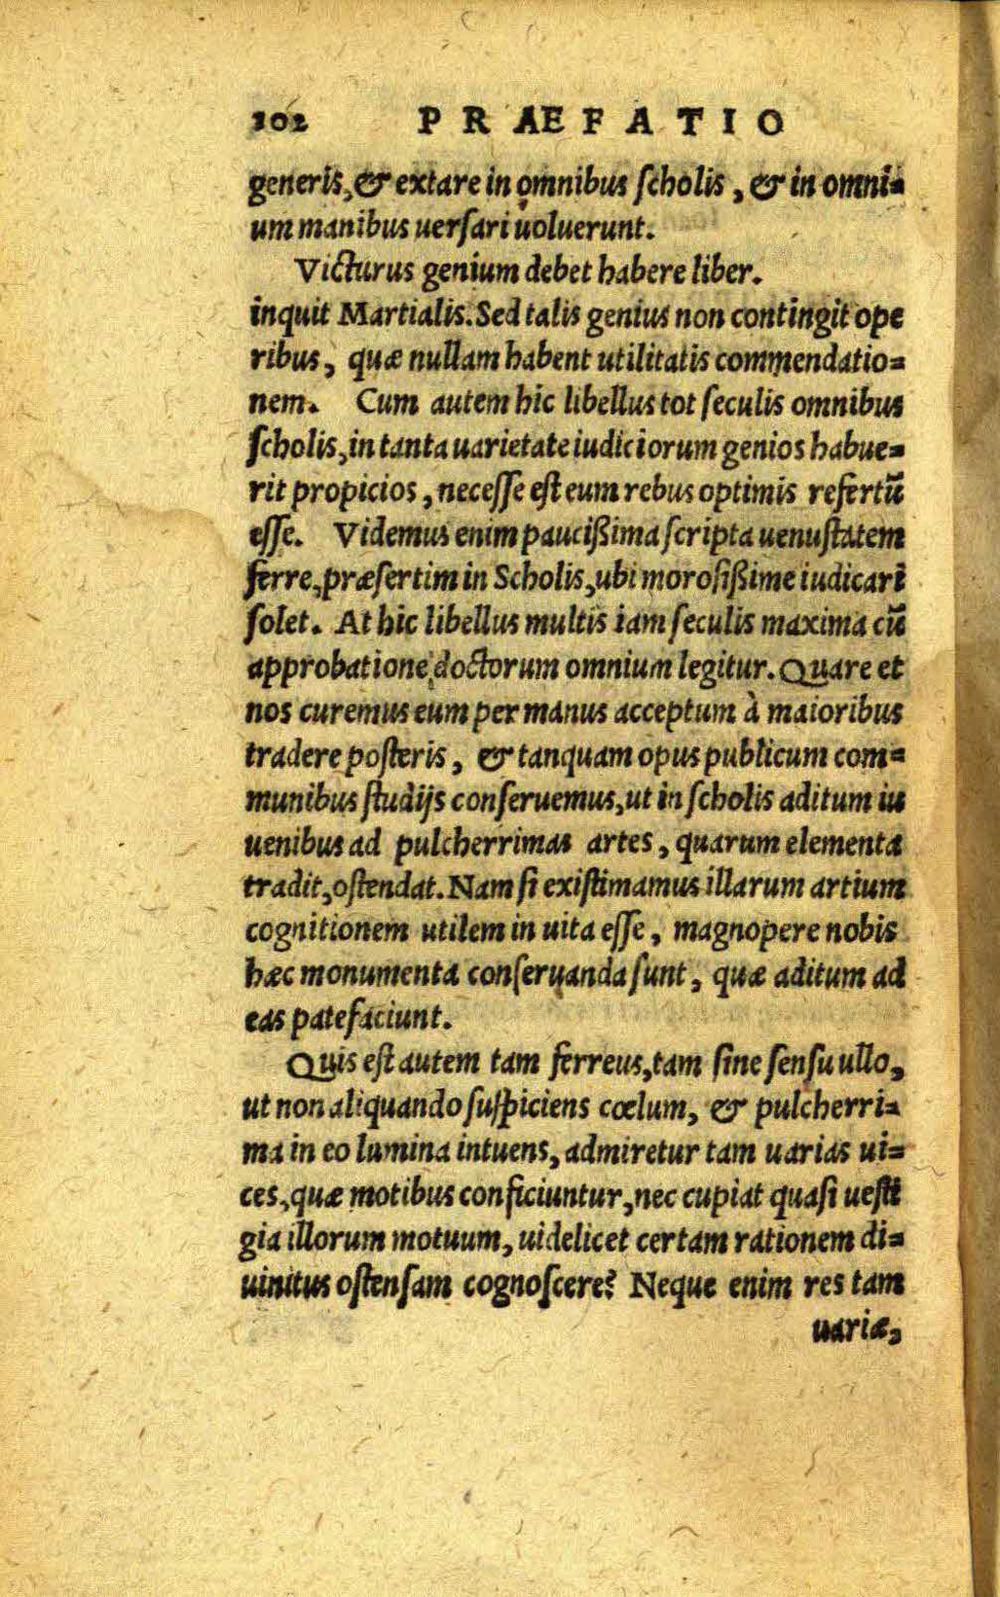 102 PRÆFATIO
generis, & extare in omnibus ſcholis, & in omni=
um manibus uerſari uoluerunt.
Victurus genium debet habere liber.
inquit Martialis. Sed talis genius non contingit ope
ribus, quæ nullam habent utilitatis commendatio=
nem. Cum autem hic libellus tot ſeculis omnibus
ſcholis, in tanta uarietate iudiciorum genios habue=
rit propicios, neceſſe eſt eum rebus optimis refertū
eſſe. Videmus enim pauciſſima ſcripta uenuſtatem
ferre, præſertim in Scholis, ubi moroſiſſime iudicari
ſolet. At hic libellus multis iam ſeculis maxima cū
approbatione doctorum omnium legitur. Quare et
nos curemus eum per manus acceptum à maioribus
tradere poſteris, & tanquam opus publicum com=
munibus ſtudijs conſeruemus, ut in ſcholis aditum iu
uenibus ad pulcherrimas artes, quarum elementa
tradit, oſtendat. Nam ſi exiſtimamus illarum artium
cognitionem utilem in uita eſſe, magnopere nobis
hæc monumenta conſeruanda ſunt, quæ aditum ad
eas patefaciunt.
Quis eſt autem tam ferreus, tam ſine ſenſu ullo,
ut non aliquando ſuſpiciens cœlum, & pulcherri=
ma in eo lumina intuens, admiretur tam uarias ui=
ces, quæ motibus conficiuntur, nec cupiat quaſi ueſti
gia illorum motuum, uidelicet certam rationem di=
uinitus oſtenſam cognoſcere? Neque enim res tam
uariæ,